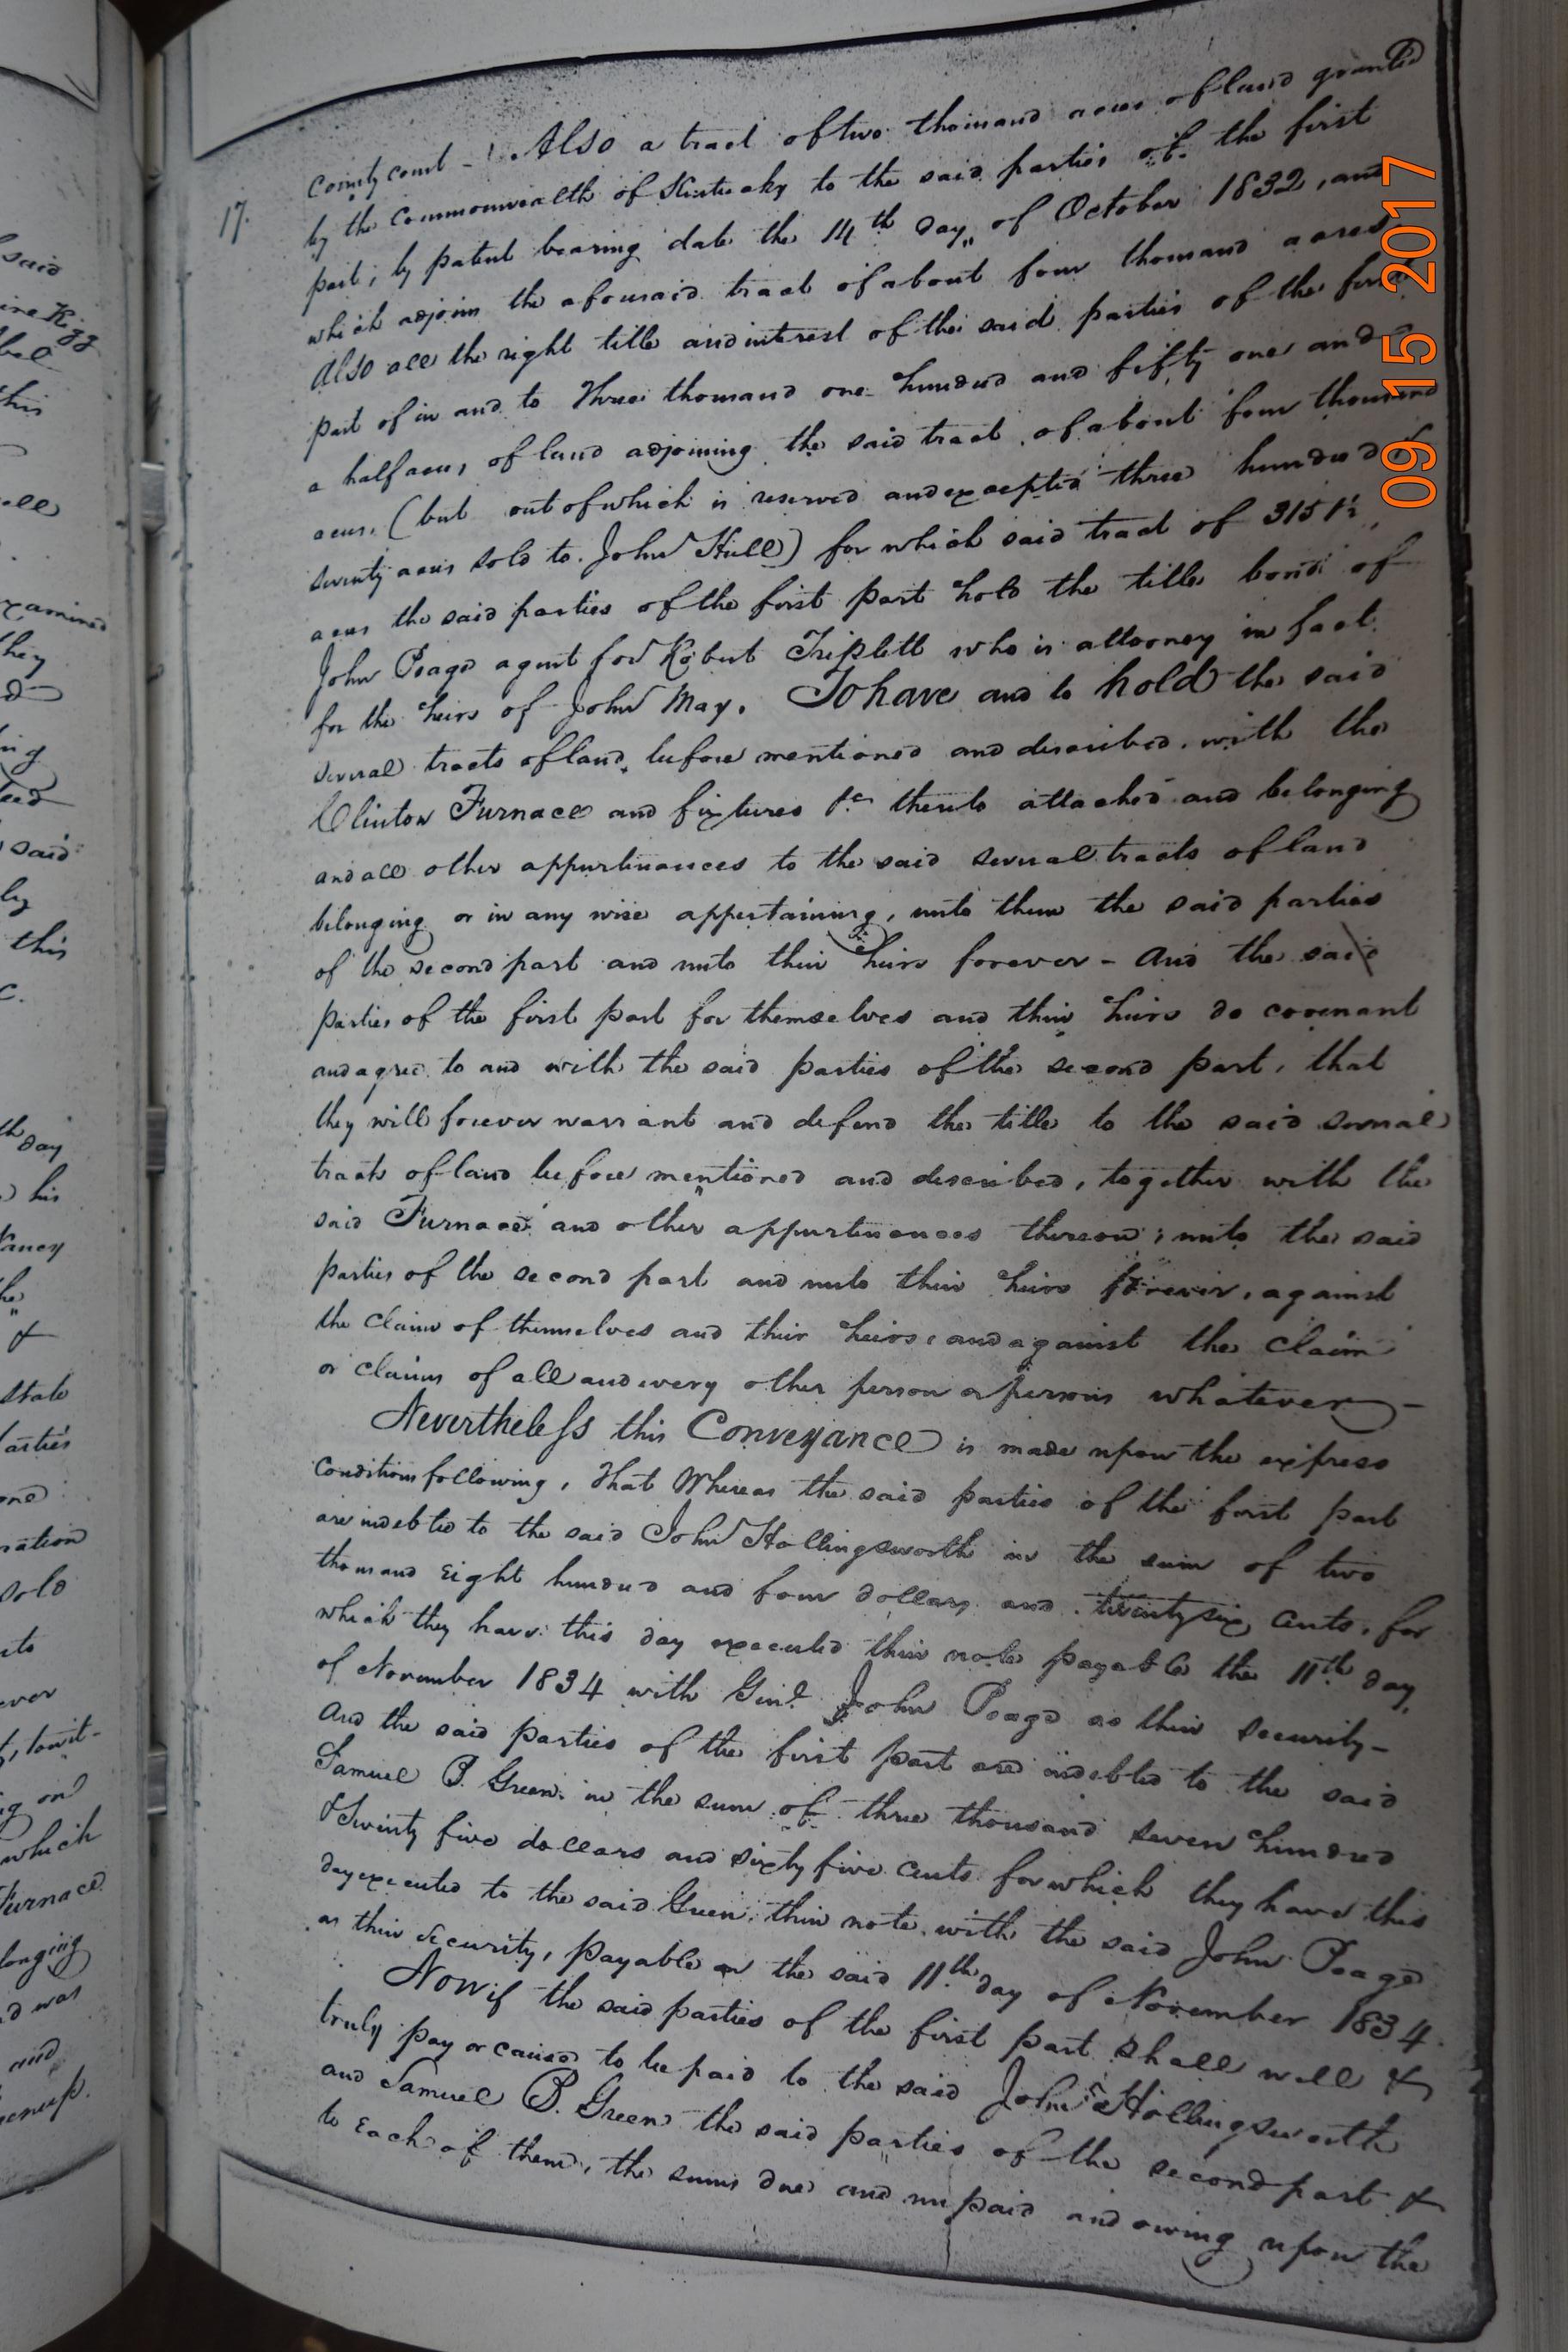 17.
County court - Also a tract of two thousand acres of land granted
by the Commonwealth of Kentucky to the said parties of the first
part, by patent bearing date the 14th day of October 1832, and
which adjoins the aforesaid tract of about four thousand acres
Also all the right title and interest of the said parties of the first
part of in and to Three thousand one hundred and fifty one and
a half acres of land adjoining the said tract of about four thousand
acres. (but out of which is reserved and excepted three hundred &
seventy acres sold to John Hull) for which said tract of 3151½
acres the said parties of the first part hold the title bond of
John Poage agent for Robert Triplett who is attorney in fact
for the heirs of John May. To have and to hold the said
several tracts of land, before mentioned and described, with the
Clinton Furnace and fixtures &c thereto attached and belonging
and all other appurtenances to the said several tracts of land
belonging or in any wise appertaining, unto them the said parties
of the second part and unto their heirs forever - And the said
parties of the first part for themselves and their heirs do covenant
and agree to and with the said parties of the second part, that
they will forever warrant and defend the title to the said several
tracts of land before mentioned and described, together with the
said Furnace and other appurtenances thereon; unto the said
parties of the second part and unto their heirs forever, against
the claim of themselves and their heirs, and against the claim
or claims of all and every other person or persons whatever -
Nevertheless this Conveyance is made upon the express
Conditions following, That Whereas the said parties of the first part
are indebted to the said John Hollingsworth in the sum of two
thousand Eight hundred and four dollars and twenty six Cents, for
which they have this day executed their note payable the 11th day
of November 1834 with Genl. John Poage as their security -
And the said parties of the first part are indebted to the said
Samuel B. Green in the sum of three thousand seven hundred
& Twenty five dollars and sixty five Cents for which they have this
day executed to the said Green their note with the said John Poage
as their security, payable on the said 11th day of November 1834.
Now if the said parties of the first part shall well &
truly pay or cause to be paid to the said John Hollingsworth
and Samuel B. Green the said parties of the second part &
to Each of them, the sums due and unpaid and owing upon the
09 15 2017